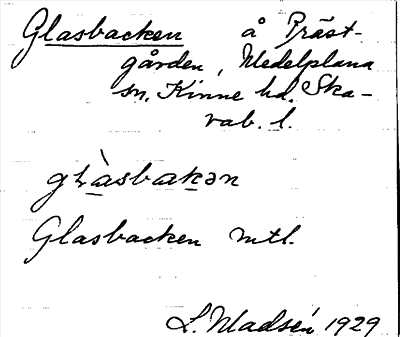 Glasbacken å Präst-
gården, Medelplana
sn. Kinne hd. Ska-
rab. l.
gɫàsbakən
Glasbacken mtl.
L. Madsén 1929